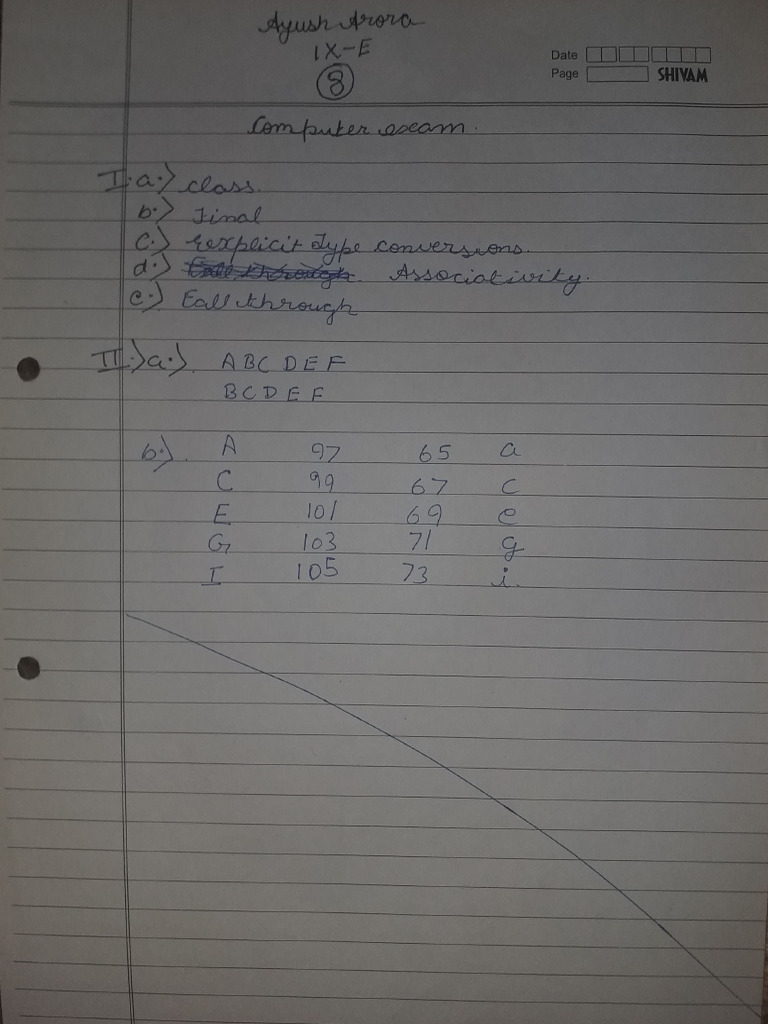 Ayush Arora
IX-E
8
Date
Page SHIVAM
Computer exam.
I.a.) class.
b.) Final
c.) explicit Type conversions.
d.) Fall through Associativity.
e.) Fall through
II.)a.). ABCDEF
BCDEF
b.). A 97 65 a
C 99 67 c
E 101 69 e
G 103 71 g
I 105 73 i.